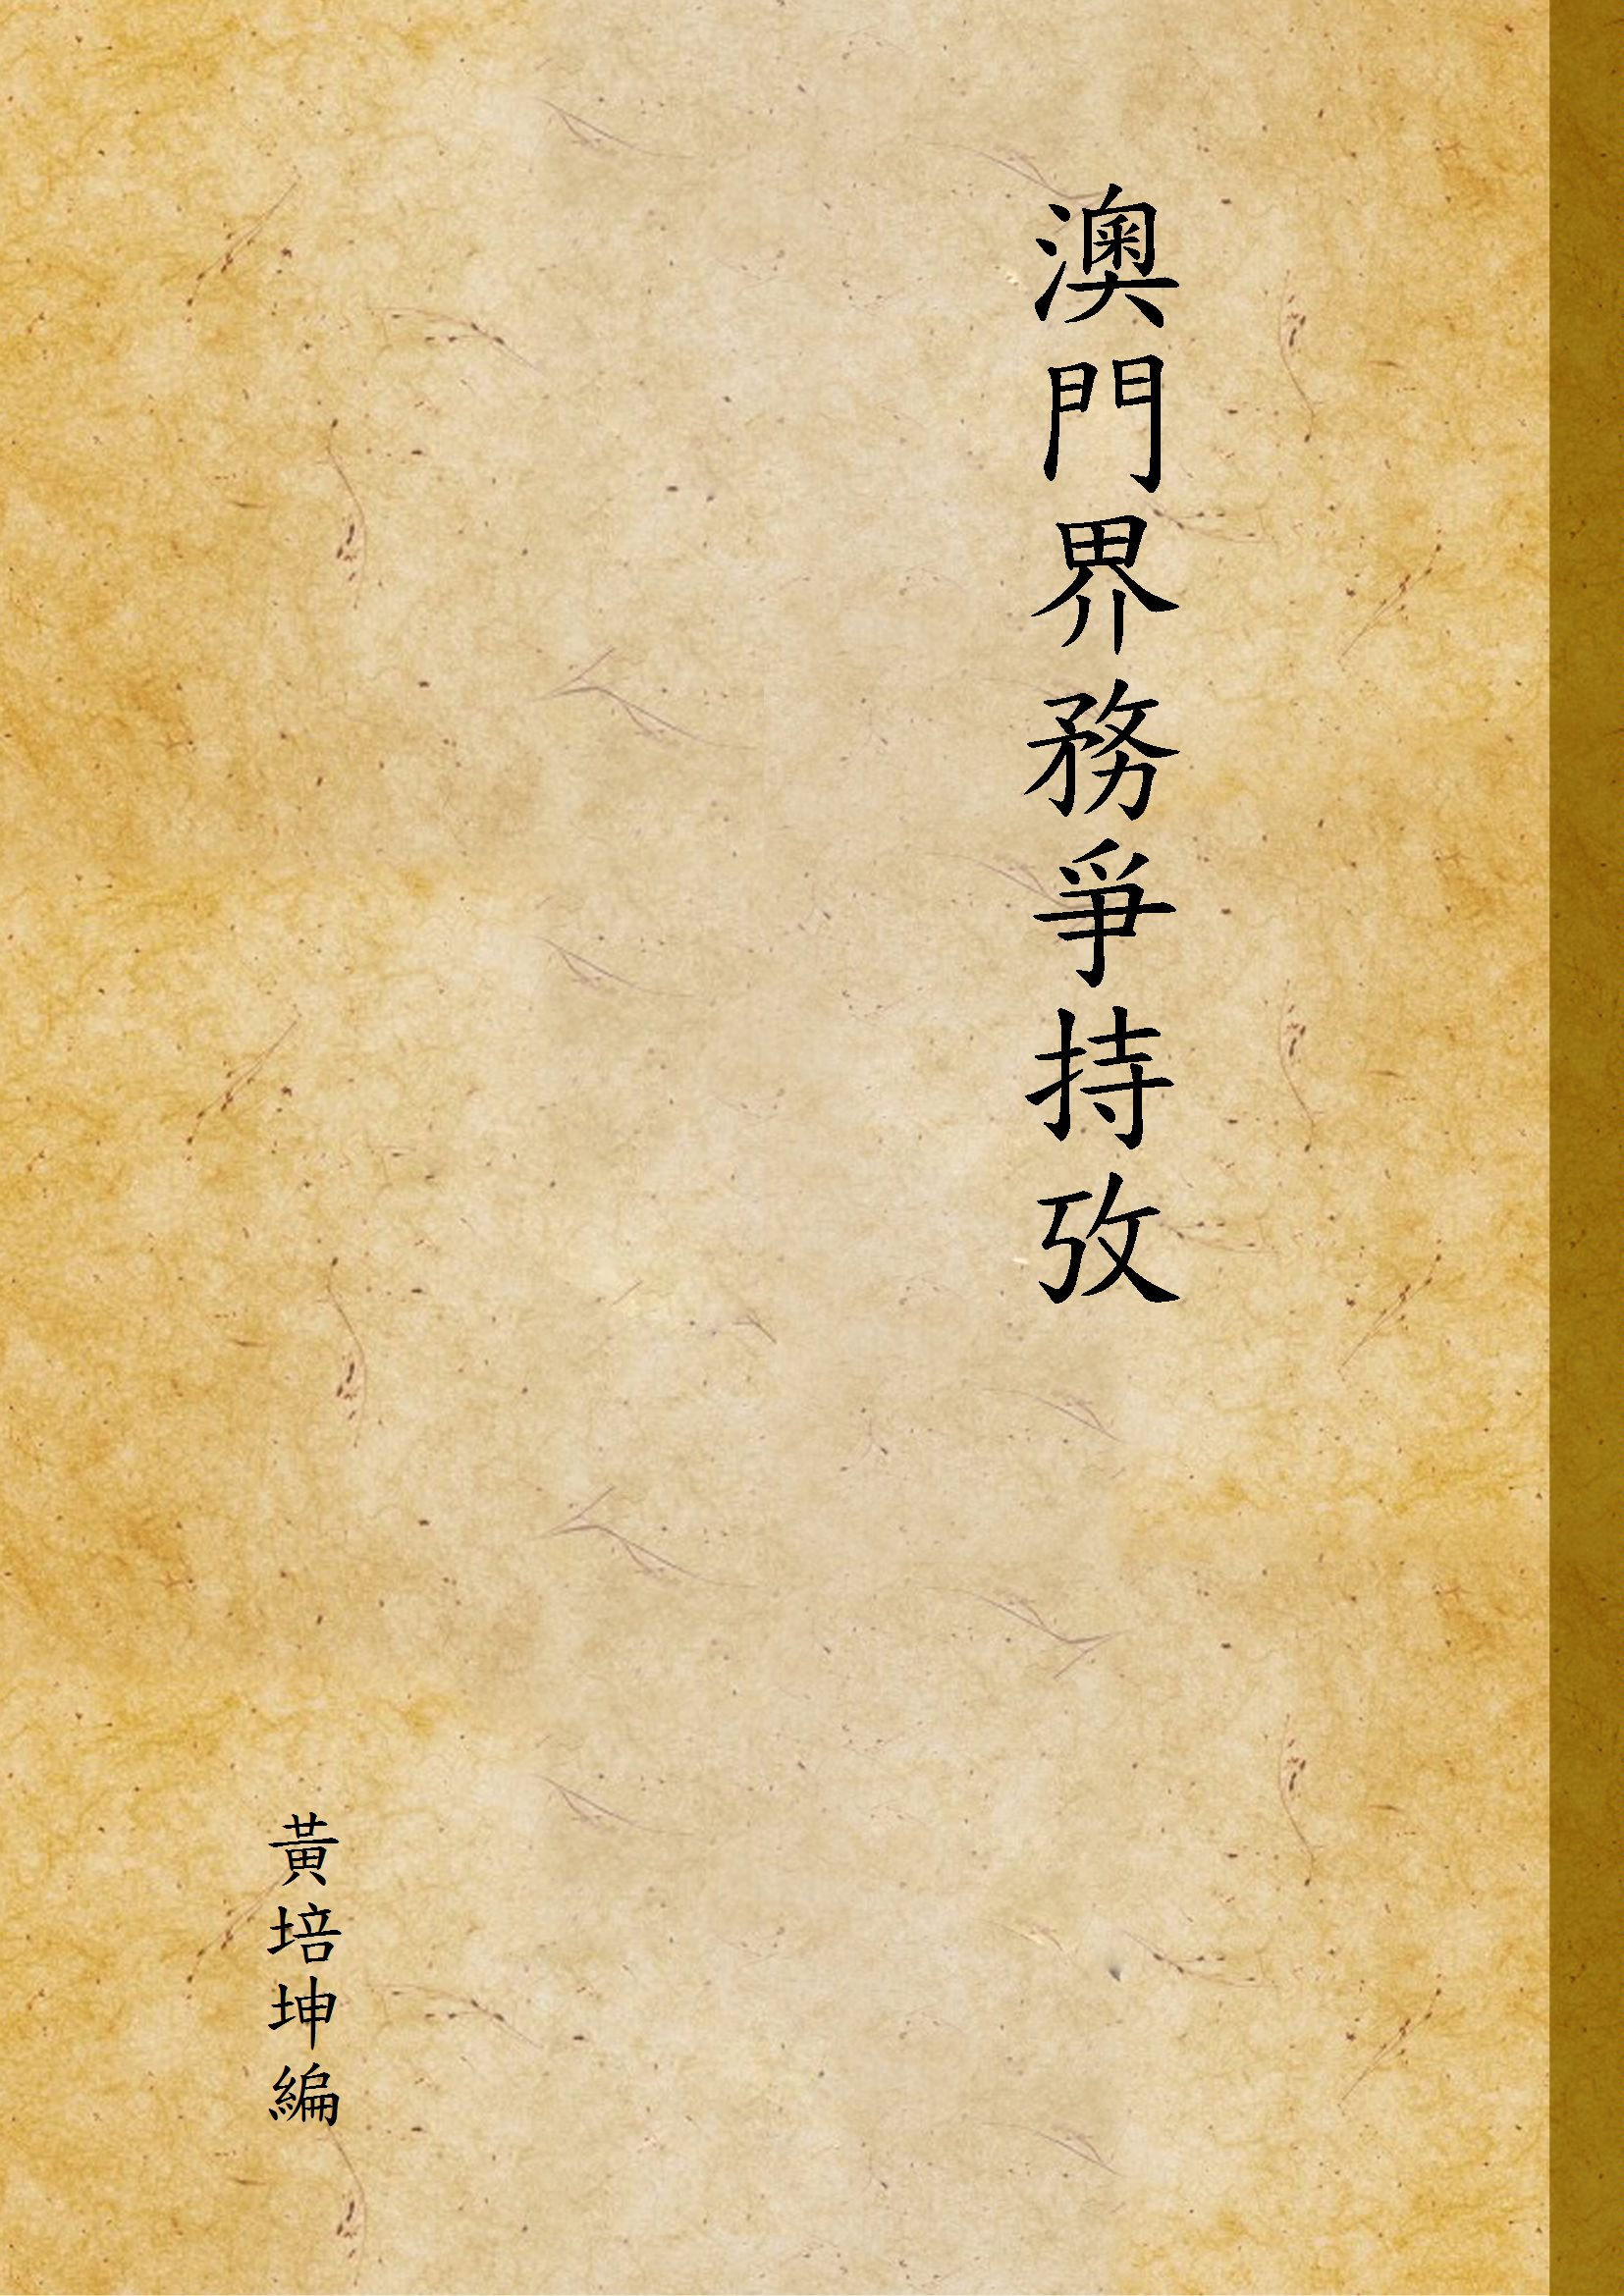 澳門界務爭持攷
黃培坤編